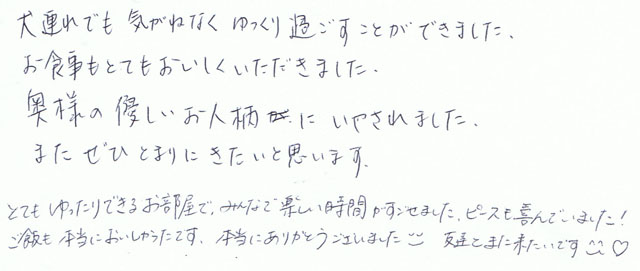 犬連れでも気がねなくゆっくり過ごすことができました。
お食事もとてもおいしくいただきました。
奥様の優しいお人柄にいやされました。
またぜひとまりにきたいと思います。
とてもゆったりできるお部屋で、みんなで楽しい時間がすごせました。ピースも喜んでいました!
ご飯も本当においしかったです。本当にありがとうございました また来たいです ♡